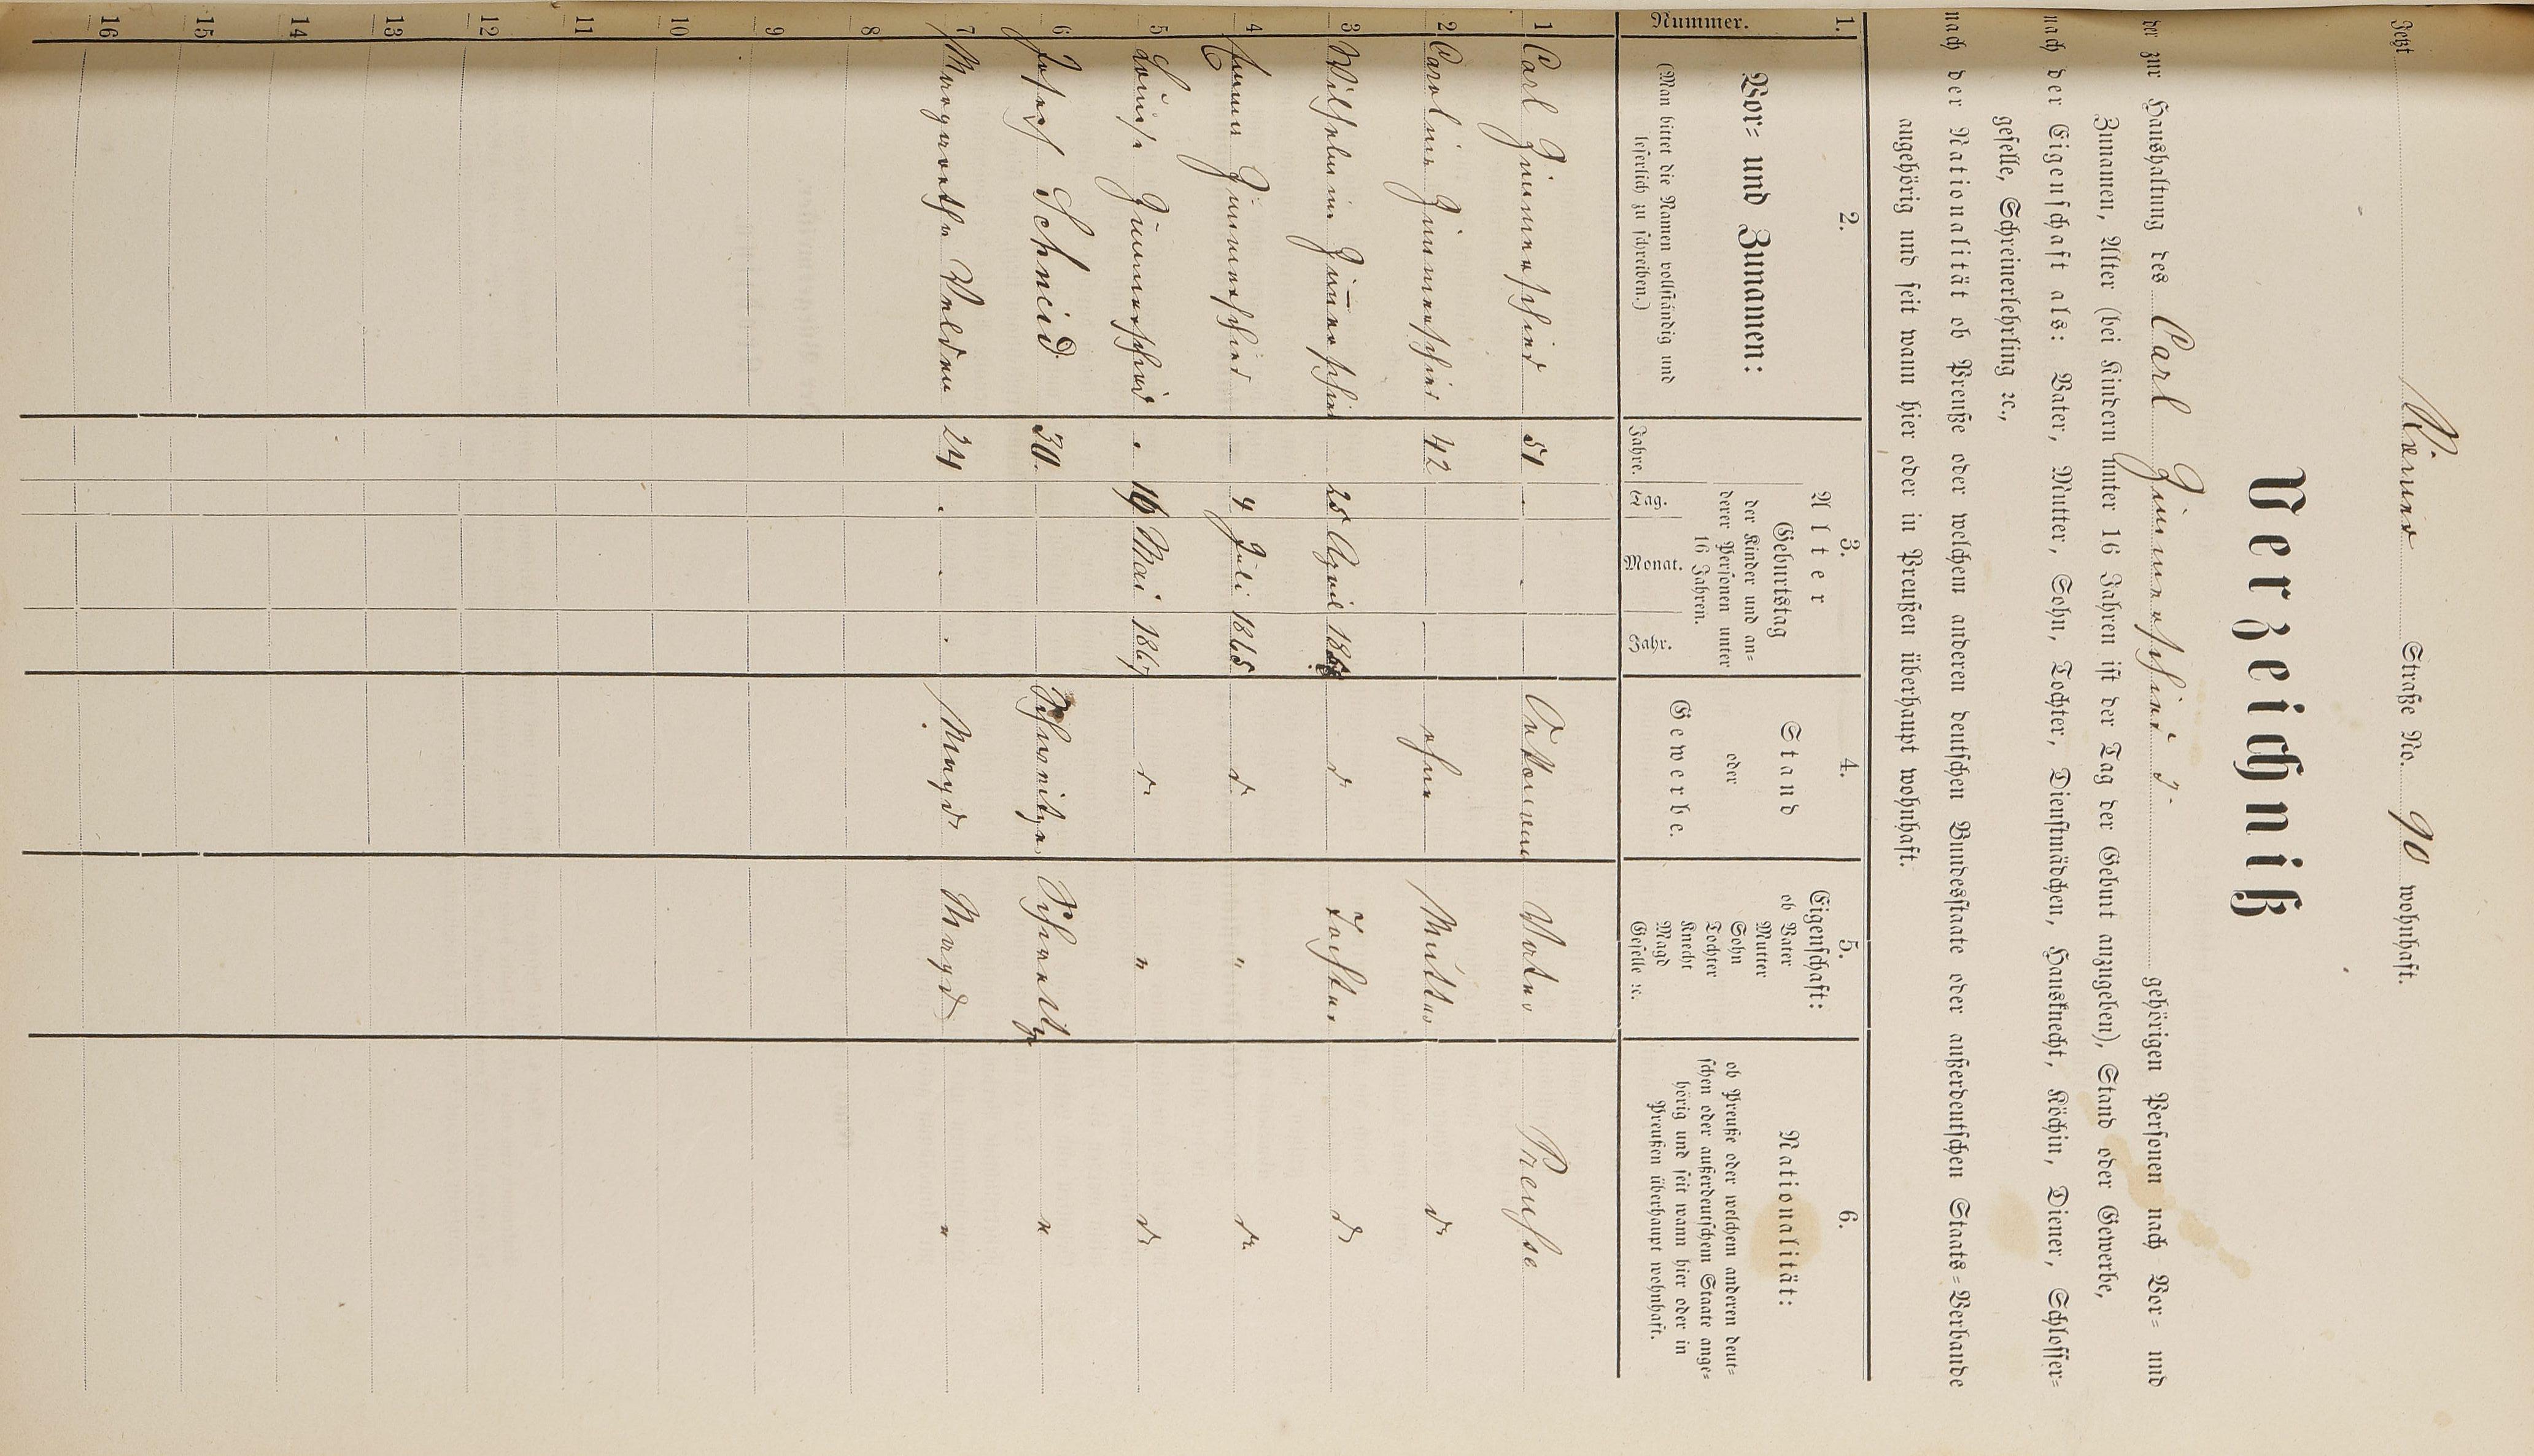 Jetzt Römer Straße No. 90 wohnhaft.
Verzeichniß
der zur Haushaltung des Carl Zimmerschied gehörigen Personen nach Vor- und
Zunamen, Alter (bei Kindern unter 16 Jahren ist der Tag der Geburt anzugeben), Stand oder Gewerbe,
nach der Eigenschaft als: Vater, Mutter, Sohn, Tochter, Dienstmädchen, Hausknecht, Köchin, Diener, Schlosser-
geselle, Schreinerlehrling ꝛc.,
nach der Nationalität ob Preuße oder welchem anderen deutschen Bundesstaate oder außerdeutschen Staats-Verbande
angehörig und seit wann hier oder in Preußen überhaupt wohnhaft.
1. 2. 3. 4. 5. 6.
Nummer.
Vor- und Zunamen:
(Man bittet die Namen vollständig und
leserlich zu schreiben.)
Alter
Geburtstag
der Kinder und an-
derer Personen unter
16 Jahren.
Jahre. Tag. Monat. Jahr.
Stand
oder
Gewerbe.
Eigenschaft:
ob Vater
Mutter
Sohn
Tochter
Knecht
Magd
Geselle ꝛc.
Nationalität:
ob Preuße oder welchem anderen deut-
schen oder außerdeutschem Staate ange-
hörig und seit wann hier oder in
Preußen überhaupt wohnhaft.
1 Carl Zimmerschied 51 Vater Preusse
2 Caroline Zimmerschied 42 ohne Mutter do
3 Wilhelmine Zim̅erschied April do Tochter do
4 Zimmerschied 4 Juli 1865 do " do
5 Louise Zimmerschied Mai 1867 do " do
6 Josef Schneid 30. "
7 Margarethe Velden 24 Magd Magd "
8
9
10
11
12
13
14
15
16